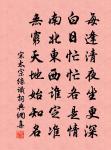 每逢清夜坐更深
白日忙忙各是情
南北東西誰定准
無窮天地始知名
宋太宗緣識詞典網集